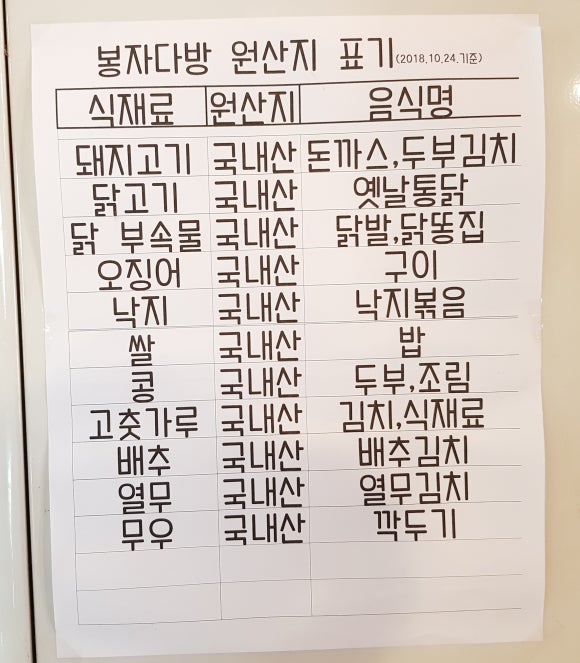 봉자다방 원산지 표기(2018.10.24.기준)
식재료 원산지 음식명
돼지고기 국내산 돈까스,두부김치
닭고기 국내산 옛날통닭
닭 부속물 국내산 닭발,닭똥집
오징어 국내산 구이
낙지 국내산 낙지볶음
쌀 국내산 밥
콩 국내산 두부,조림
고춧가루 국내산 김치,식재료
배추 국내산 배추김치
열무 국내산 열무김치
무우 국내산 깍두기